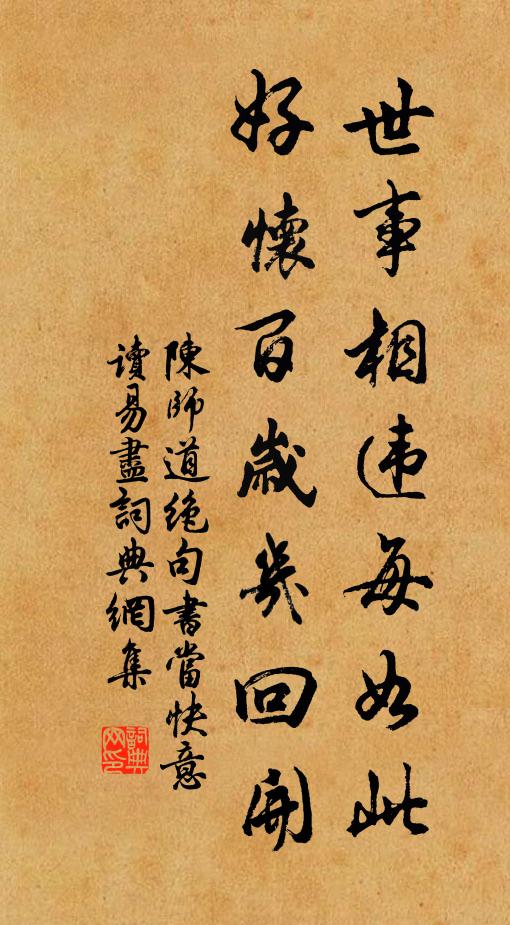 世事相违每如此
好懷百歲幾回開
陳師道絶句書當快意
讀易盡詞典網集
詞典网印